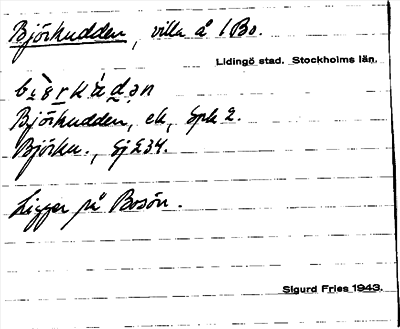 Björkudden, villa å 1 Bo.
Lidingö stad. Stockholms län.
Björkudden, ek, Spk 2.
Björku., Gj 234.
Ligger på Bosön.
Sigurd Fries 1943.